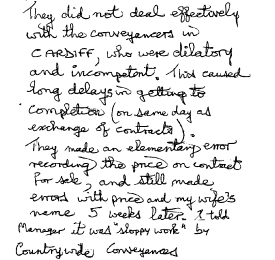 They did not deal effectively
with the conveyancers in
CARDIFF, who were dilatory
and incompetent. This caused
long delays in getting to
completion (on same day as
exchange of contracts).
They made an elementary error
recording the price on contract
for sale, and still made
errors with price and my wife's
name 5 weeks later. I told
Manager it was "sloppy work" by
Countrywide Conveyances